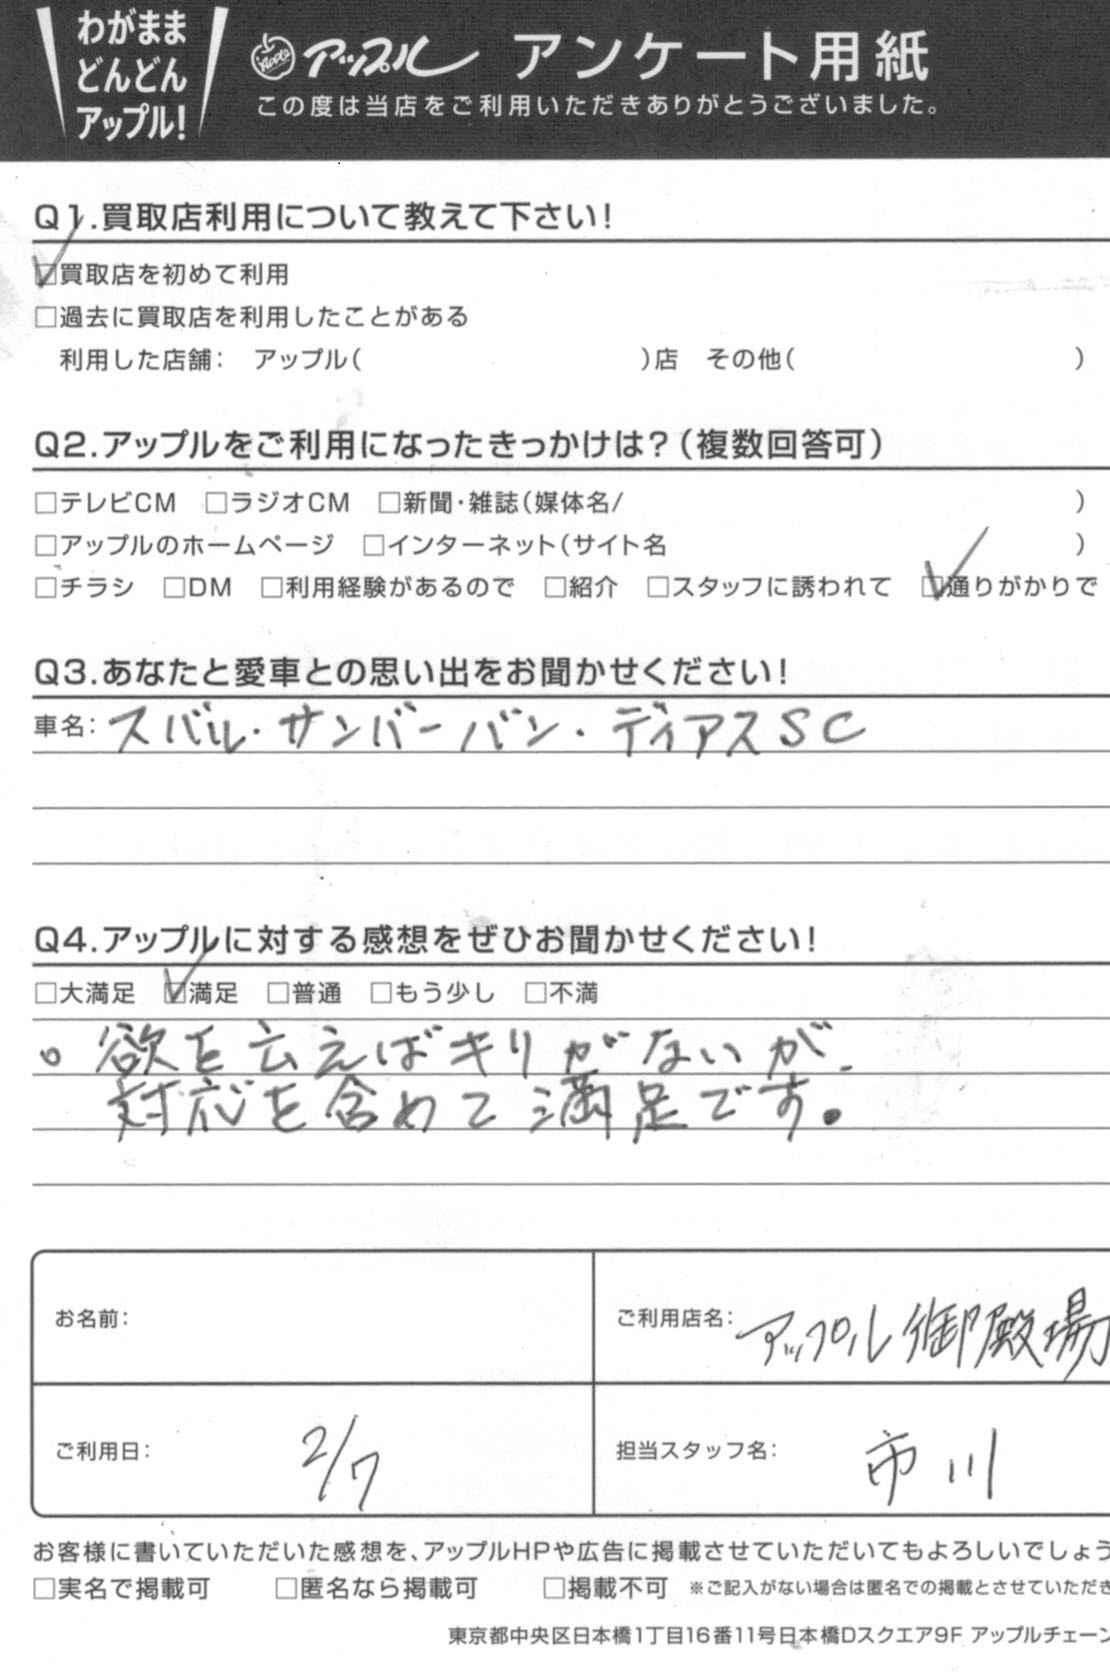 わがまま
どんどん
アップル!
Apple アップル アンケート用紙
この度は当店をご利用いただきありがとうございました。
Q1.買取店利用について教えて下さい!
☑買取店を初めて利用
□過去に買取店を利用したことがある
利用した店舗: アップル( )店 その他( )
Q2.アップルをご利用になったきっかけは?(複数回答可)
□テレビCM □ラジオCM □新聞・雑誌(媒体名/ )
□アップルのホームページ □インターネット(サイト名 )
□チラシ □DM □利用経験があるので □紹介 □スタッフに誘われて ☑通りがかりで
Q3.あなたと愛車との思い出をお聞かせください!
車名: スバル・サンバーバン・ディアスSC
Q4.アップルに対する感想をぜひお聞かせください!
□大満足 ☑満足 □普通 □もう少し □不満
。欲を云えばキリがないが、
対応を含めて満足です。
お名前:
ご利用店名: アップル御殿場
ご利用日: 2/7
担当スタッフ名: 市川
お客様に書いていただいた感想を、アップルHPや広告に掲載させていただいてもよろしいでしょう
□実名で掲載可 □匿名なら掲載可 □掲載不可 ※ご記入がない場合は匿名での掲載とさせていただき
東京都中央区日本橋1丁目16番11号日本橋Dスクエア9F アップルチェーン